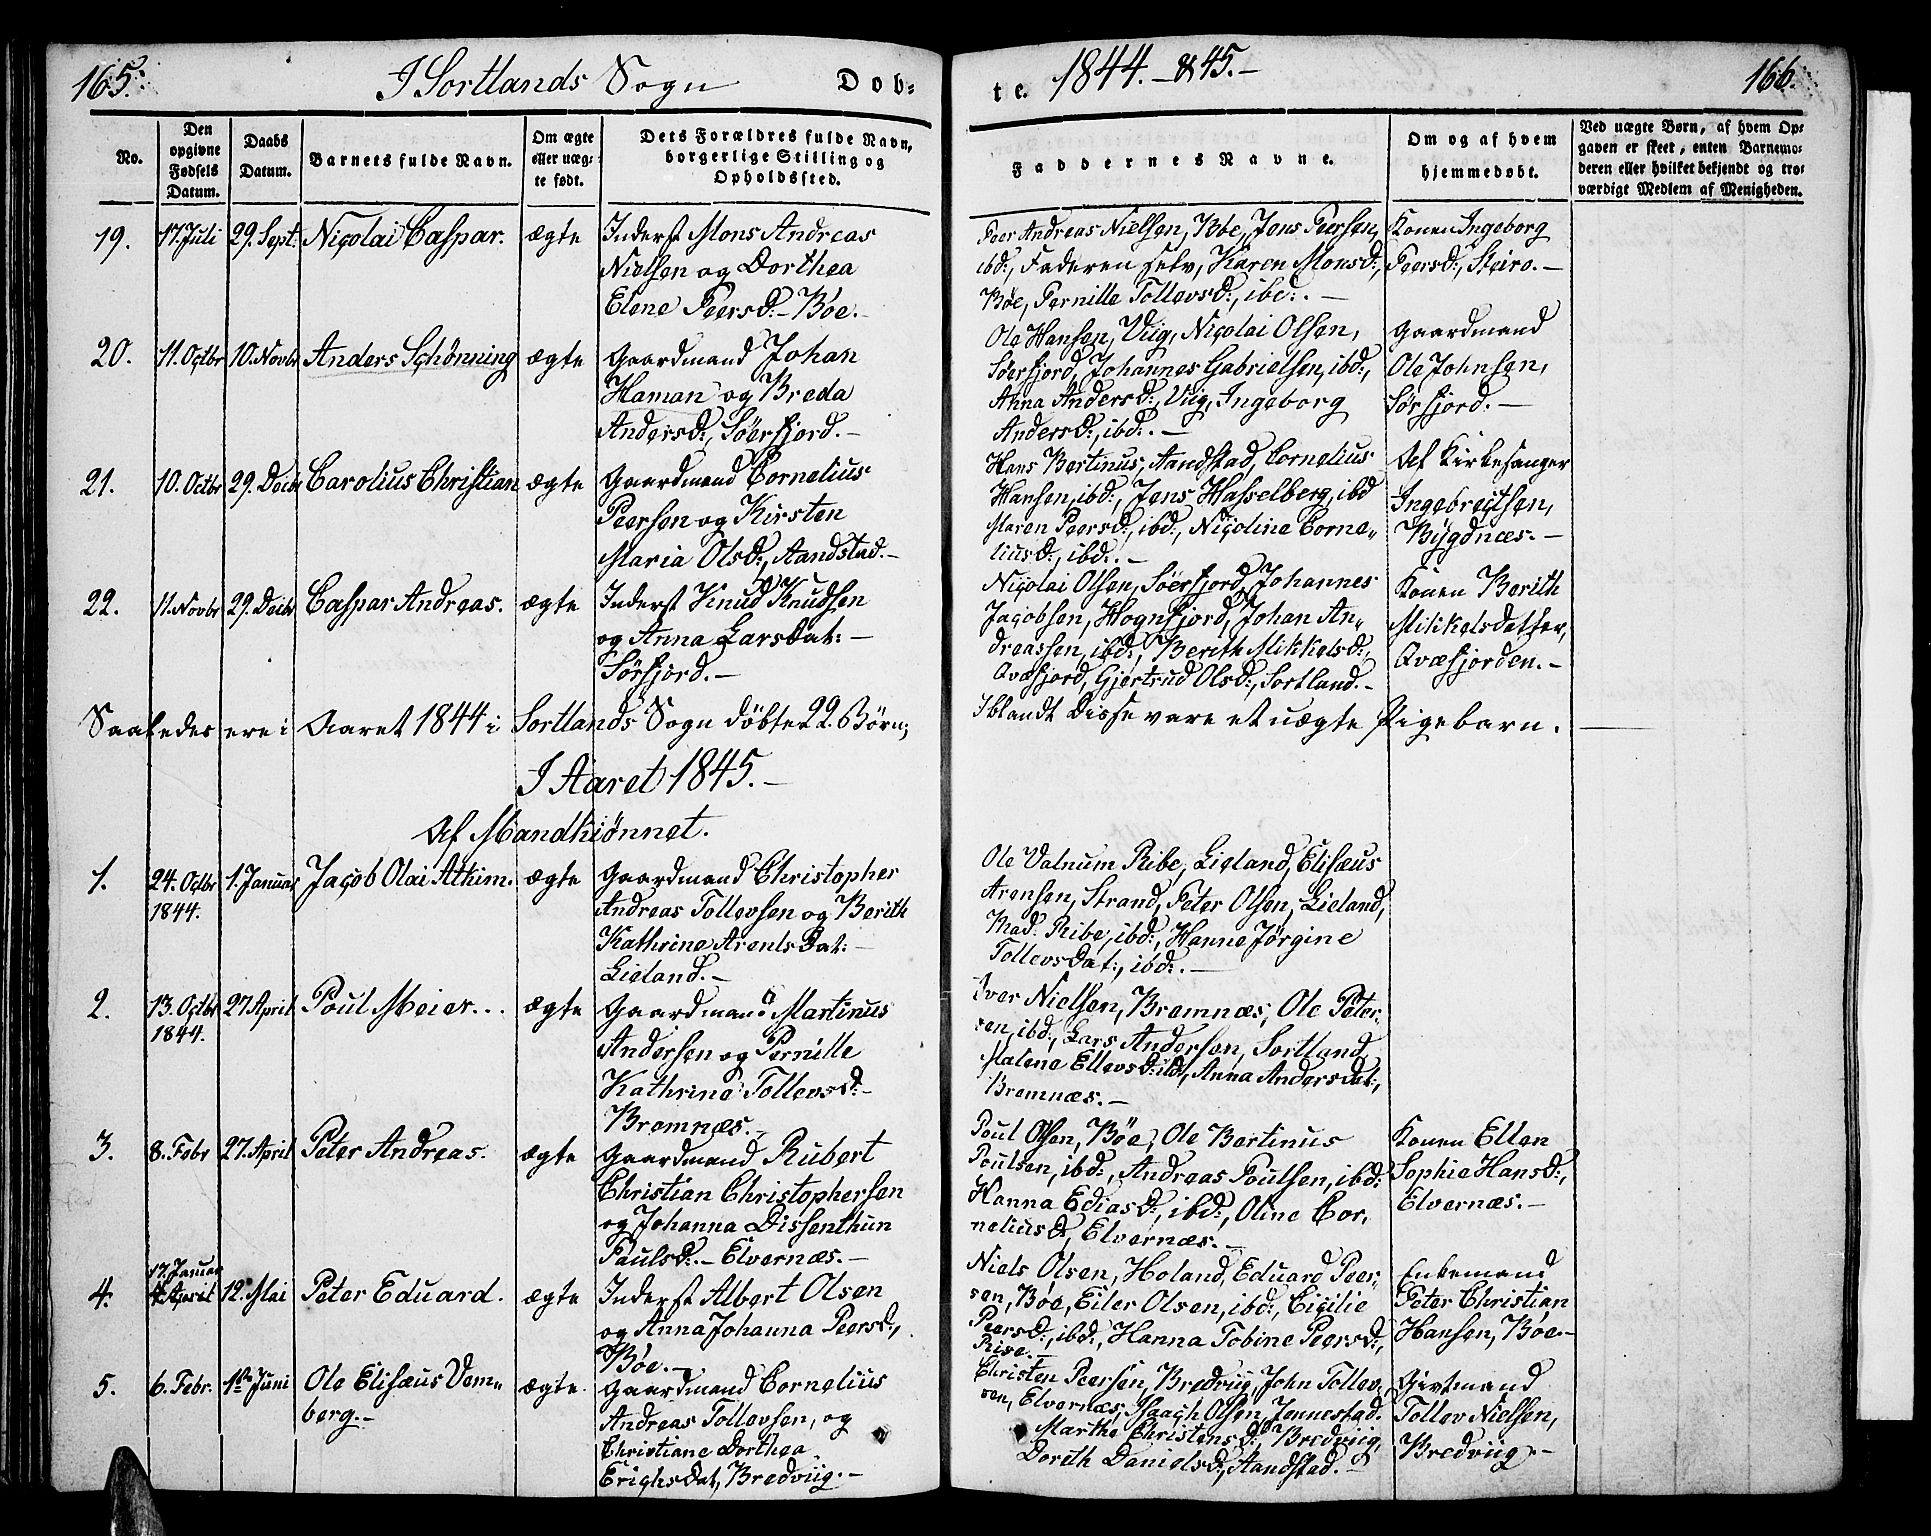 165.
I Sortlands Sogn
Dob-
te.
1844. - & 45. -
166.
No.
Den opgivne Fødsels Datum.
Daabs Datum.
Barnets fulde Navn.
Om ægte eller uæg- te født.
Dets Forældres fulde Navn, borgerlige Stilling og Opholdssted.
Faddernes Navne.
Om og af hvem hjemmedøbt.
Ved uægte Børn, af hvem Op-
gaven er skeet, enten Barnemo-
deren eller hvilket bekjendt og tro-
værdigt Medlem af Menigheden.
19. 17. Juli 29. Sept. Nicolai Caspar. ægte
Inderst Mons Andreas
Nielsen og Dorthea
Elene Peersd: - Bøe. -
Peer Andreas Nielsen, Bøe, Jens Peersen,
ibd:, Faderen selv, Karen Monsd:,
Bøe, Pernille Tollevsd:, ibd:. -
Konen Ingeborg
Peersd:, Steiro. -
20. 11. Octbr 10. Novbr Anders Schønning ægte
Gaardmand Johan
Haman og Breda
Andersd:, Søerfjord. -
Ole Hansen, Viig, Nicolai Olsen,
Søerfjord, Johannes Gabrielsen, ibd:,
Anna Andersd:, Viig, Ingeborg
Andersd:, ibd:. -
Gaardmand
Ole Johnsen,
Sørfjord. -
21. 10. Octbr 29. Decbr Carolius Christian ægte
Gaardmand Cornelius
Peersen og Kirsten
Maria Olsd:, Aandstad. -
Hans Bertinus, Aandstad, Cornelius
Hansen, ibd:, Jens Hasselberg, ibd
Maren Peersd:, ibd:, Nicoline Corne-
liusd:, ibd:. -
Af Kirkesanger
Ingebregtsen,
Bygdnæs. -
22. 11. Novbr 29. Decbr Caspar Andreas. ægte
Inderst Knud Knudsen
og Anna Larsdat: -
Sørfjord. -
Nicolai Olsen, Søerfjord, Johannes
Jacobsen, Hognfjord, Johan An-
dreassen, ibd:, Berith Mikkelsd:,
Qvæfjord, Gjertrud Olsd:, Sortland. -
Konen Berith
Mikkelsdatter,
Qvæfjorden. -
Saaledes ere i Aaret 1844 i Sortlands Sogn døbte 22 Børn;
Iblandt disse vare et uægte Pigebarn. -
I Aaret 1845. -
Af Mandkiønnet.
1. 24. Octbr 1844. 1. Januar Jacob Olai Athim. ægte
Gaardmand Christopher
Andreas Tollevsen og Berith
Kathrine Arentsdat: -
Lieland. -
Ole Valnum Ribe, Lieland, Elisæus
Arensen, Strand, Peter Olsen, Lieland,
Mad. Ribe, ibd:, Hanne Jørgine
Tollevsdat:, ibd:. -
2. 13. Octbr 1844. 27 April Poul Meier. . . ægte
Gaardmand Martinus
Andersen og Pernille
Kathrine Tollevsd: -
Bremnæs. -
Iver Nielsen, Bremnæs, Ole Peter-
sen, ibd:, Lars Andersen, Sortland,
Malene Ellevsd: ibd, Anna Andersdat:,
Bremnæs. -
3. 8. Febr 27. April Peter Andreas. ægte
Gaardmand Rubert
Christian Christophersen
og Johanna Dissenthun
Paulsd: - Elvernæs. -
Poul Olsen, Bøe, Ole Bertinus
Poulsen, ibd:, Andreas Poulsen, ibd:
Hanna Ediasd:, ibd:, Oline Cor-
neliusd, Elvernæs. -
Konen Ellen
Sophie Hansd:,
Elvernæs. -
4. 17. Januar
4. April 12. Mai Peter Eduard. ægte
Inderst Albert Olsen
og Anna Johanna Peersd:,
Bøe. -
Niels Olsen, Holand, Eduard Peer-
sen, Bøe, Eiler Olsen, ibd:, Cicilie
Peersd:, ibd:, Hanna Tobine Peersd:,
Rise. -
Enkemand
Peter Christian
Hansen, Bøe. -
5. 6. Febr. 1ste Juni Ole Elisæus Vem-
berg. - ægte.
Gaardmand Cornelius
Andreas Tollevsen, og
Christiane Dorthea
Erichsdat, Bredviig. -
Christen Peersen, Bredviig, John Tollev-
sen, Elvernæs, Isaach Olsen, Jennestad.
Marthe Christensd:, Bredviig,
Dorith Danielsd:, Aandstad. -
Givtmand
Tollev Nielsen,
Bredviig. -